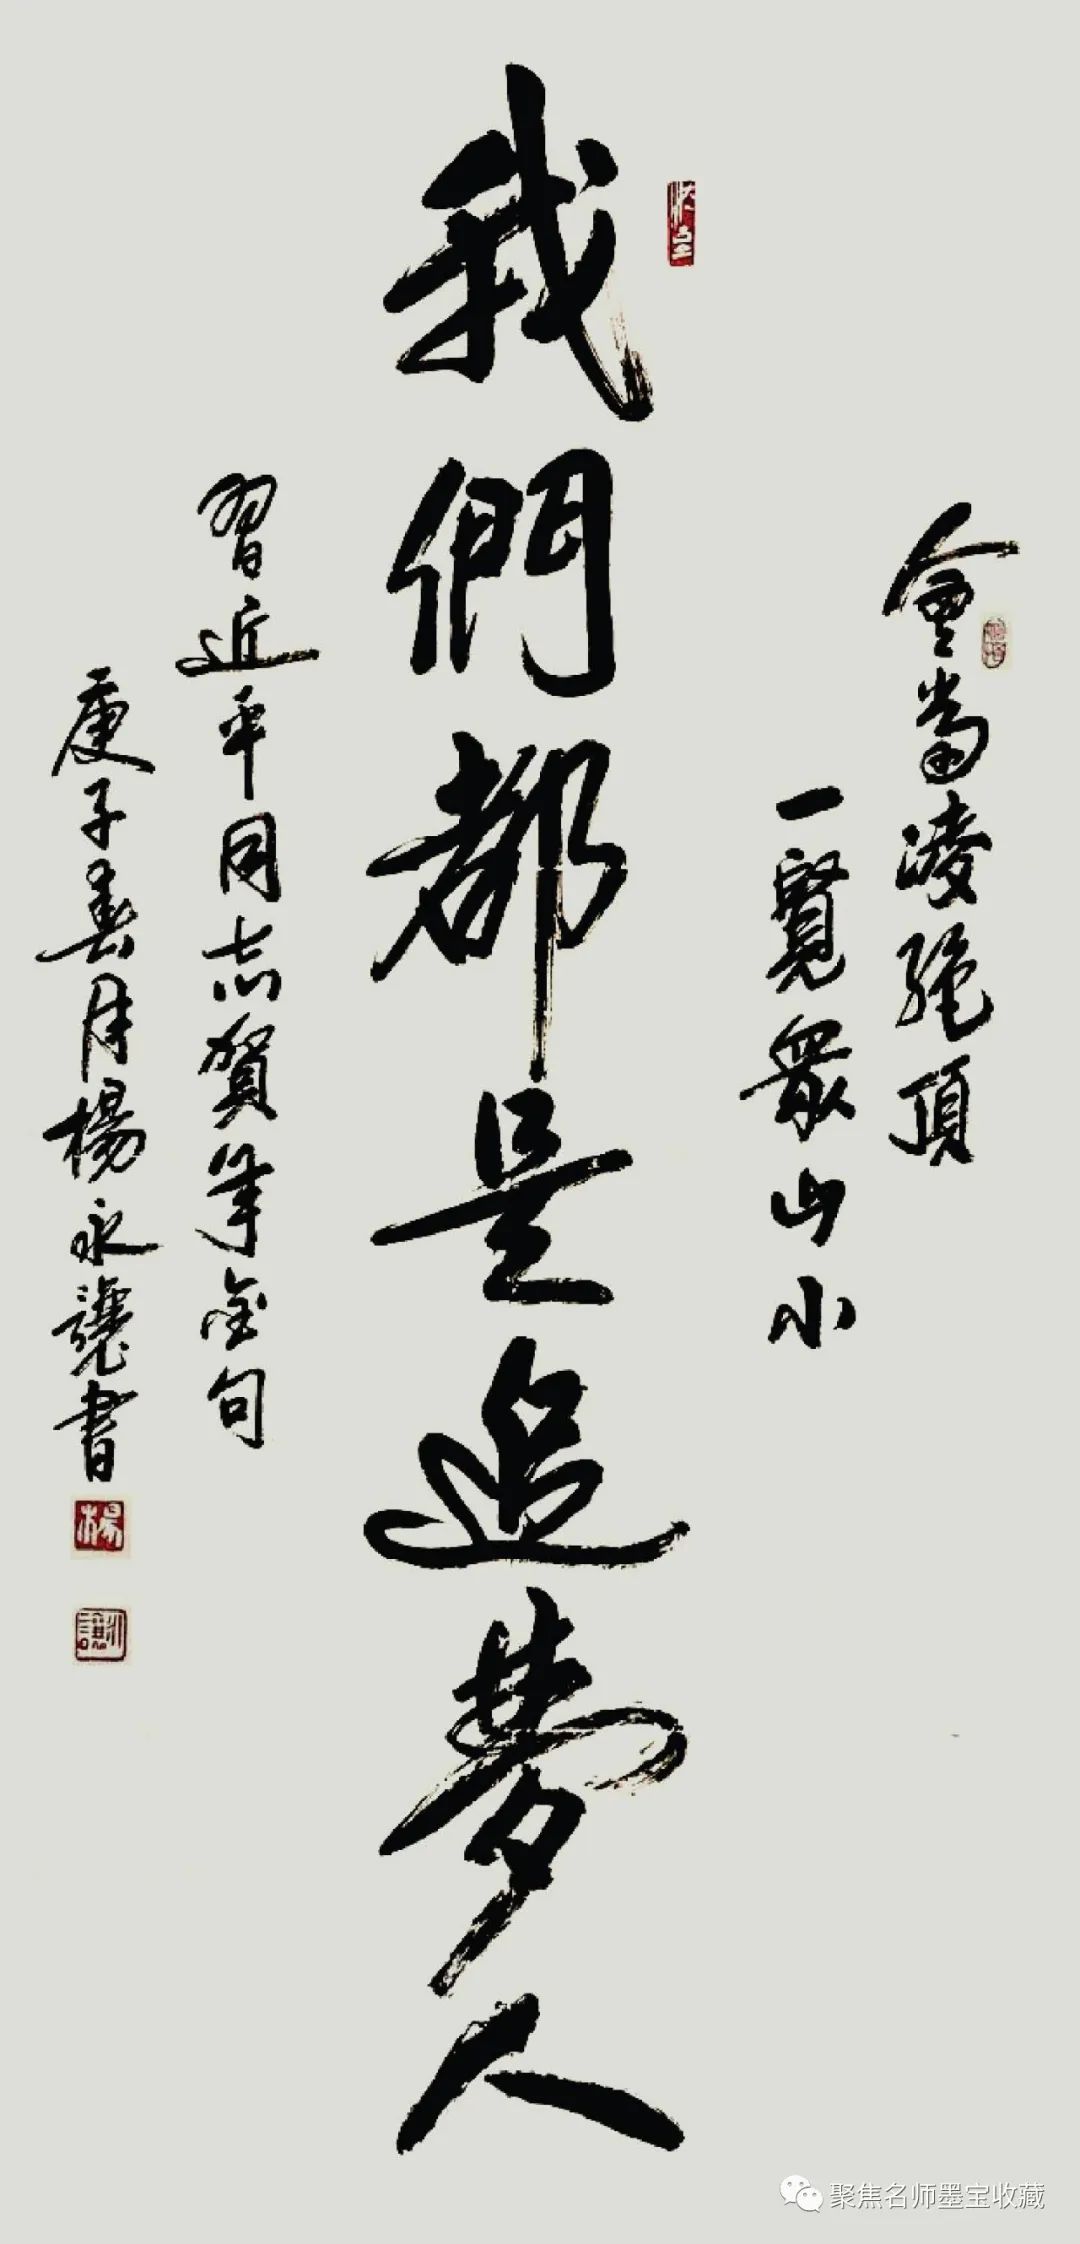 會當淩絶頂
一覽衆山小
我們都是追夢人
習近平同志賀年金句
庚子春月楊永讓書
聚焦名师墨宝收藏